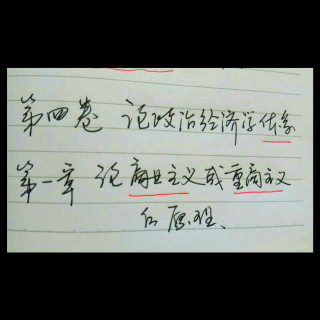 第四卷 论政治经济学体系
第一章 论商业主义或重商主义
的原理、